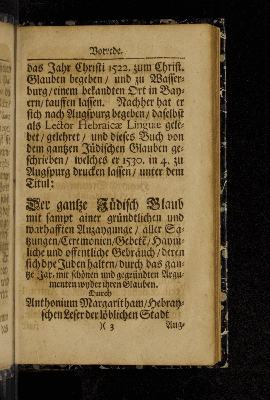 Vorrede.
das Jahr Christi 1522. zum Christ.
Glauben begeben / und zu Wasser-
burg / einem bekandten Ort in Bay-
ern / tauffen lassen. Nachher hat er
sich nach Augspurg begeben / daselbst
als Lector Hebraicæ Linguæ gele-
bet / gelehret / und dieses Buch von
dem gantzen Jüdischen Glauben ge-
schrieben / welches er 1530. in 4. zu
Augspurg drucken lassen / unter dem
Titul:
Der gantze Jüdisch Glaub
mit sampt ainer gründtlichen und
warhafften Anzaygunge / aller Sa-
tzungen / Ceremonien / Gebett / Haym-
liche und offentliche Gebräuch / deren
sich dye Juden halten / durch das gan-
tze Jar, mit schönen und gegründten Argu-
menten wyder ihren Glauben.
Durch
Anthonium Margaritham / Hebray-
schen Leser der löblichen Stadt
)( 3 Aug-